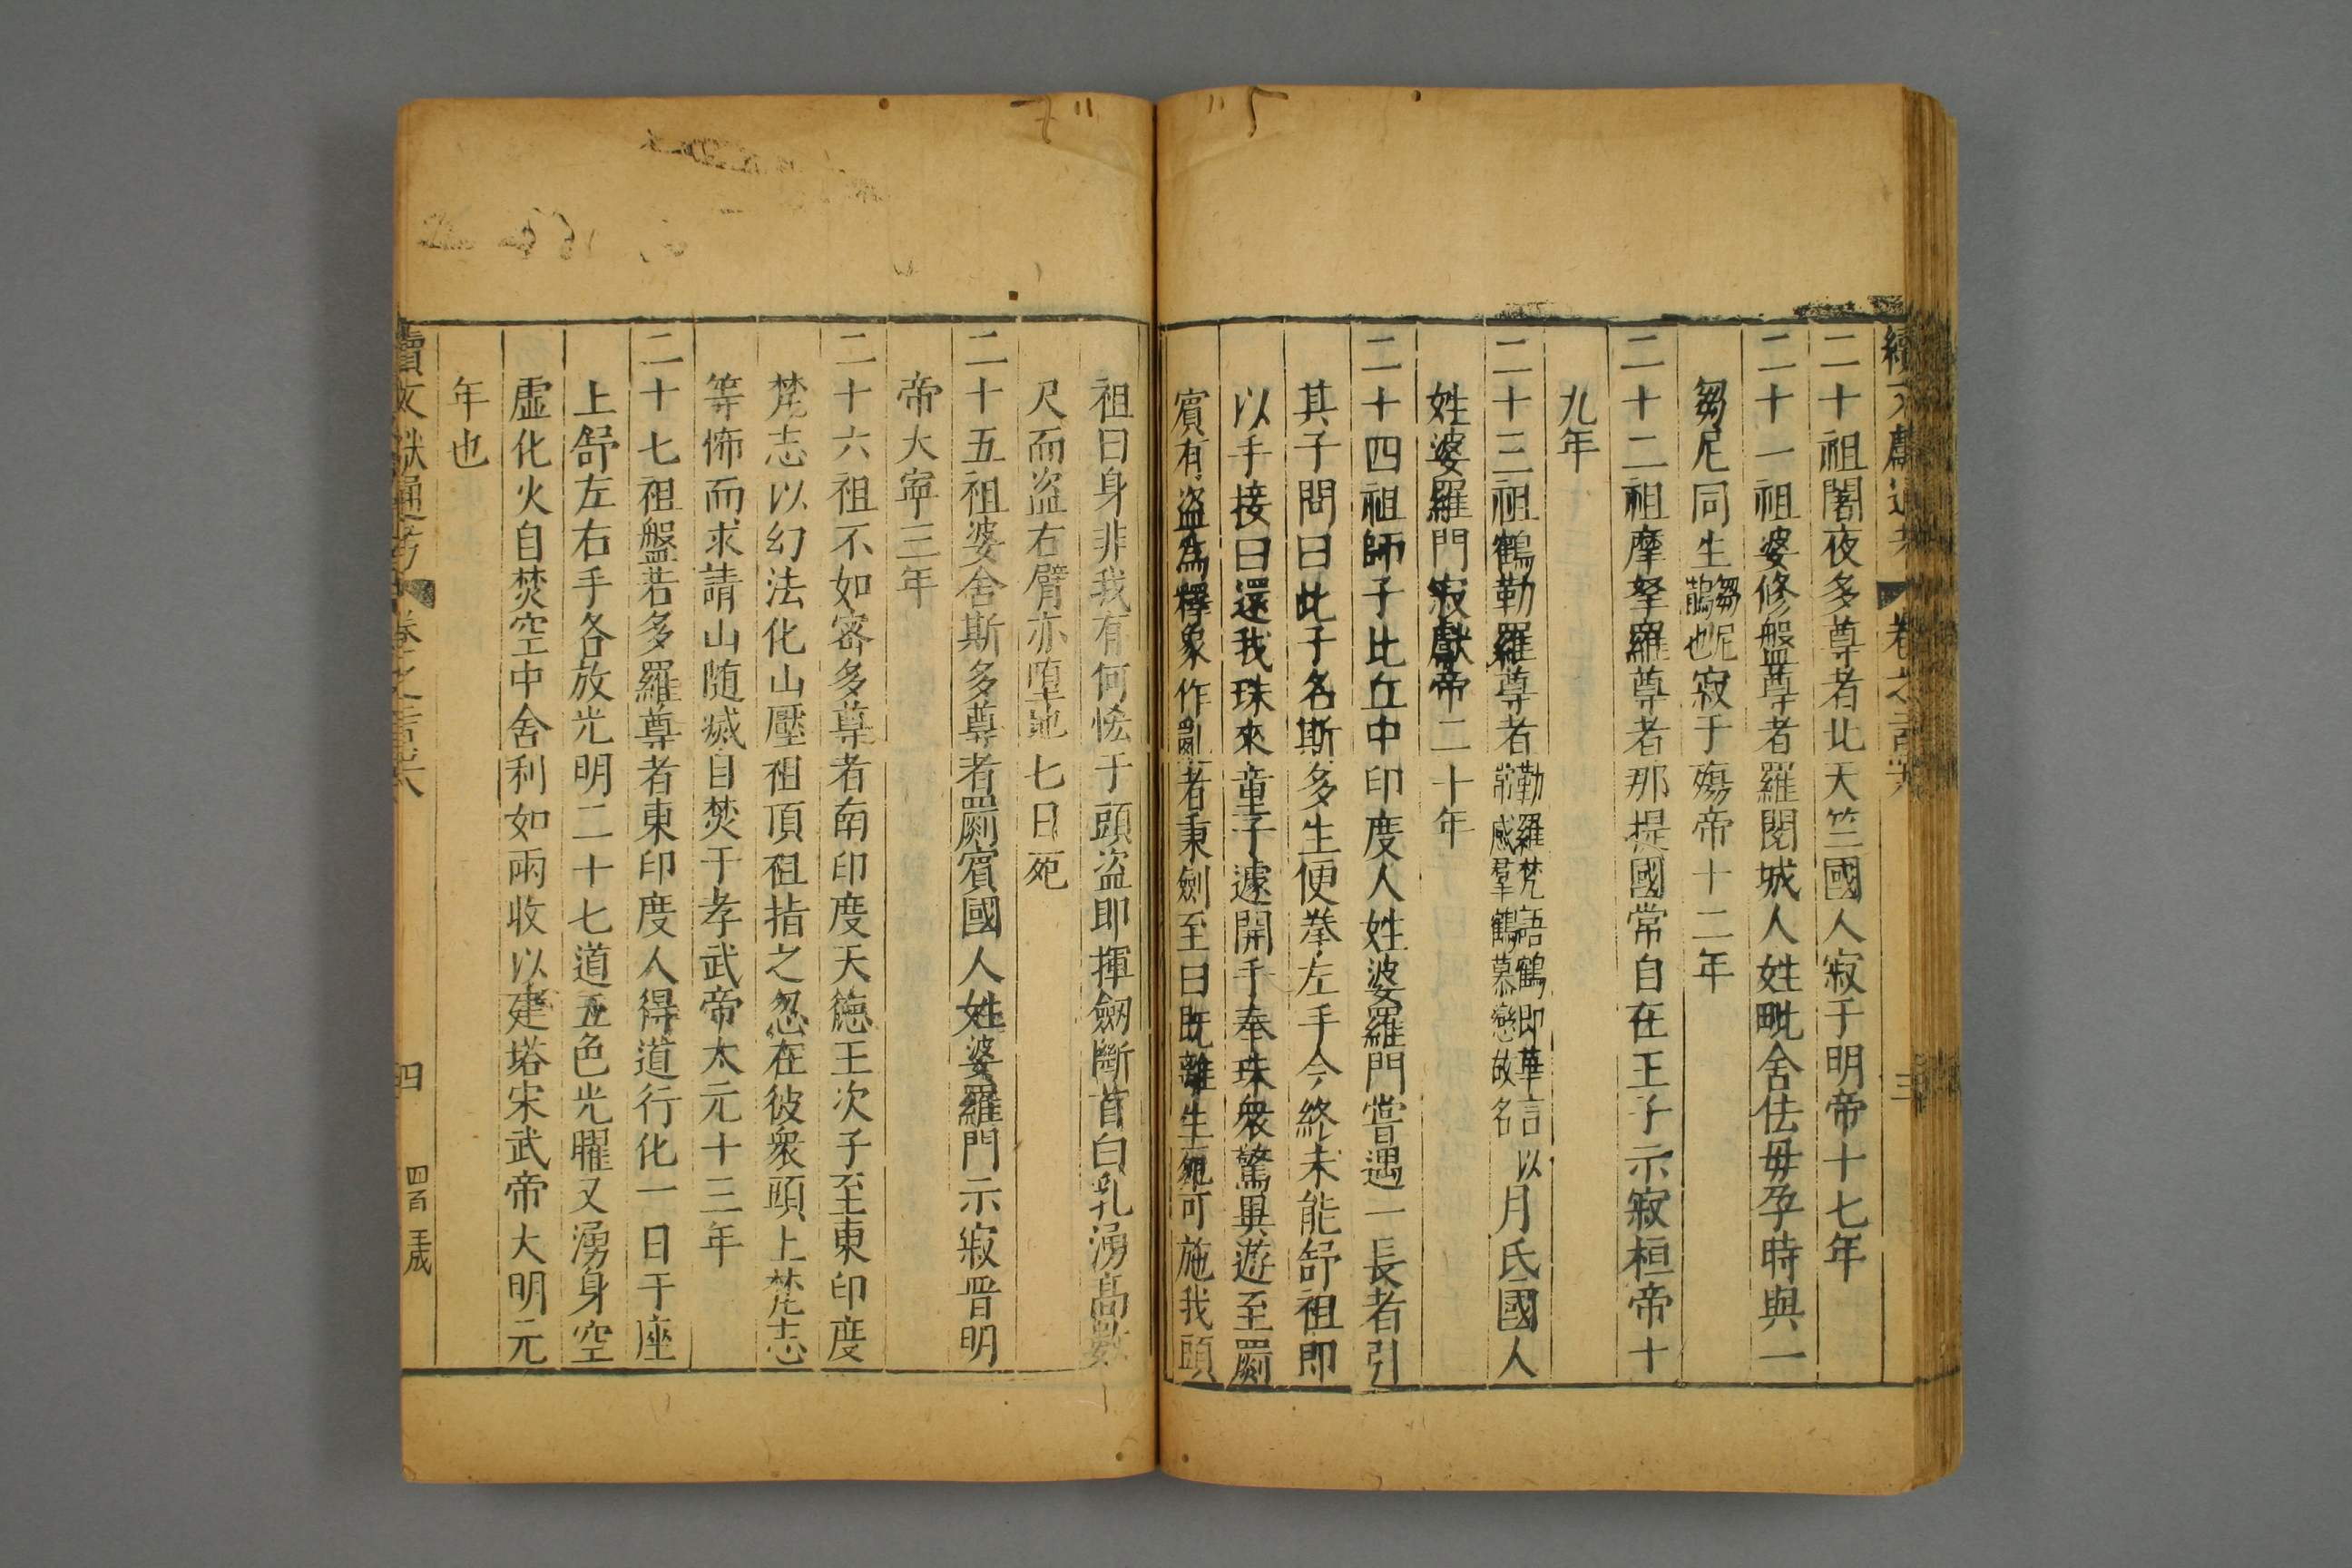 二十祖闍夜多尊者北天竺國人寂于明帝十七年
二十一祖婆修盤尊者羅閱城人姓毗舍佉母孕時與一
芻尼同生芻尼鵲也寂于殤帝十二年
二十二祖摩拏羅尊者那提國常自在王子示寂桓帝十
九年
二十三祖鶴勒羅尊者勒羅梵語鶴即華言以常感羣鶴慕戀故名月氏國人
姓婆羅門寂獻帝二十年
二十四祖師子比丘中印度人姓婆羅門嘗遇一長者引
其子問曰此子名斯多生便拳左手今終未能舒祖即
以手接曰還我珠來童子遽開手奉珠衆驚異遊至罽
賓有盜為釋象作亂者秉劍至曰既離生死可施我頭
祖曰身非我有何恡于頭盜即揮劒斷首白乳湧高數
尺而盜右臂亦墮地七日死
二十五祖婆舍斯多尊者罽賓國人姓婆羅門示寂晋明
帝大寜三年
二十六祖不如密多尊者南印度天德王次子至東印度
梵志以幻法化山壓祖頂祖指之忽在彼衆頭上梵志
等怖而求請山随滅自焚于孝武帝太元十三年
二十七祖盤若多羅尊者東印度人得道行化一日于座
上舒左右手各放光明二十七道五色光曜又湧身空
虛化火自焚空中舍利如雨收以建塔宋武帝大明元
年也
續文獻通考
四